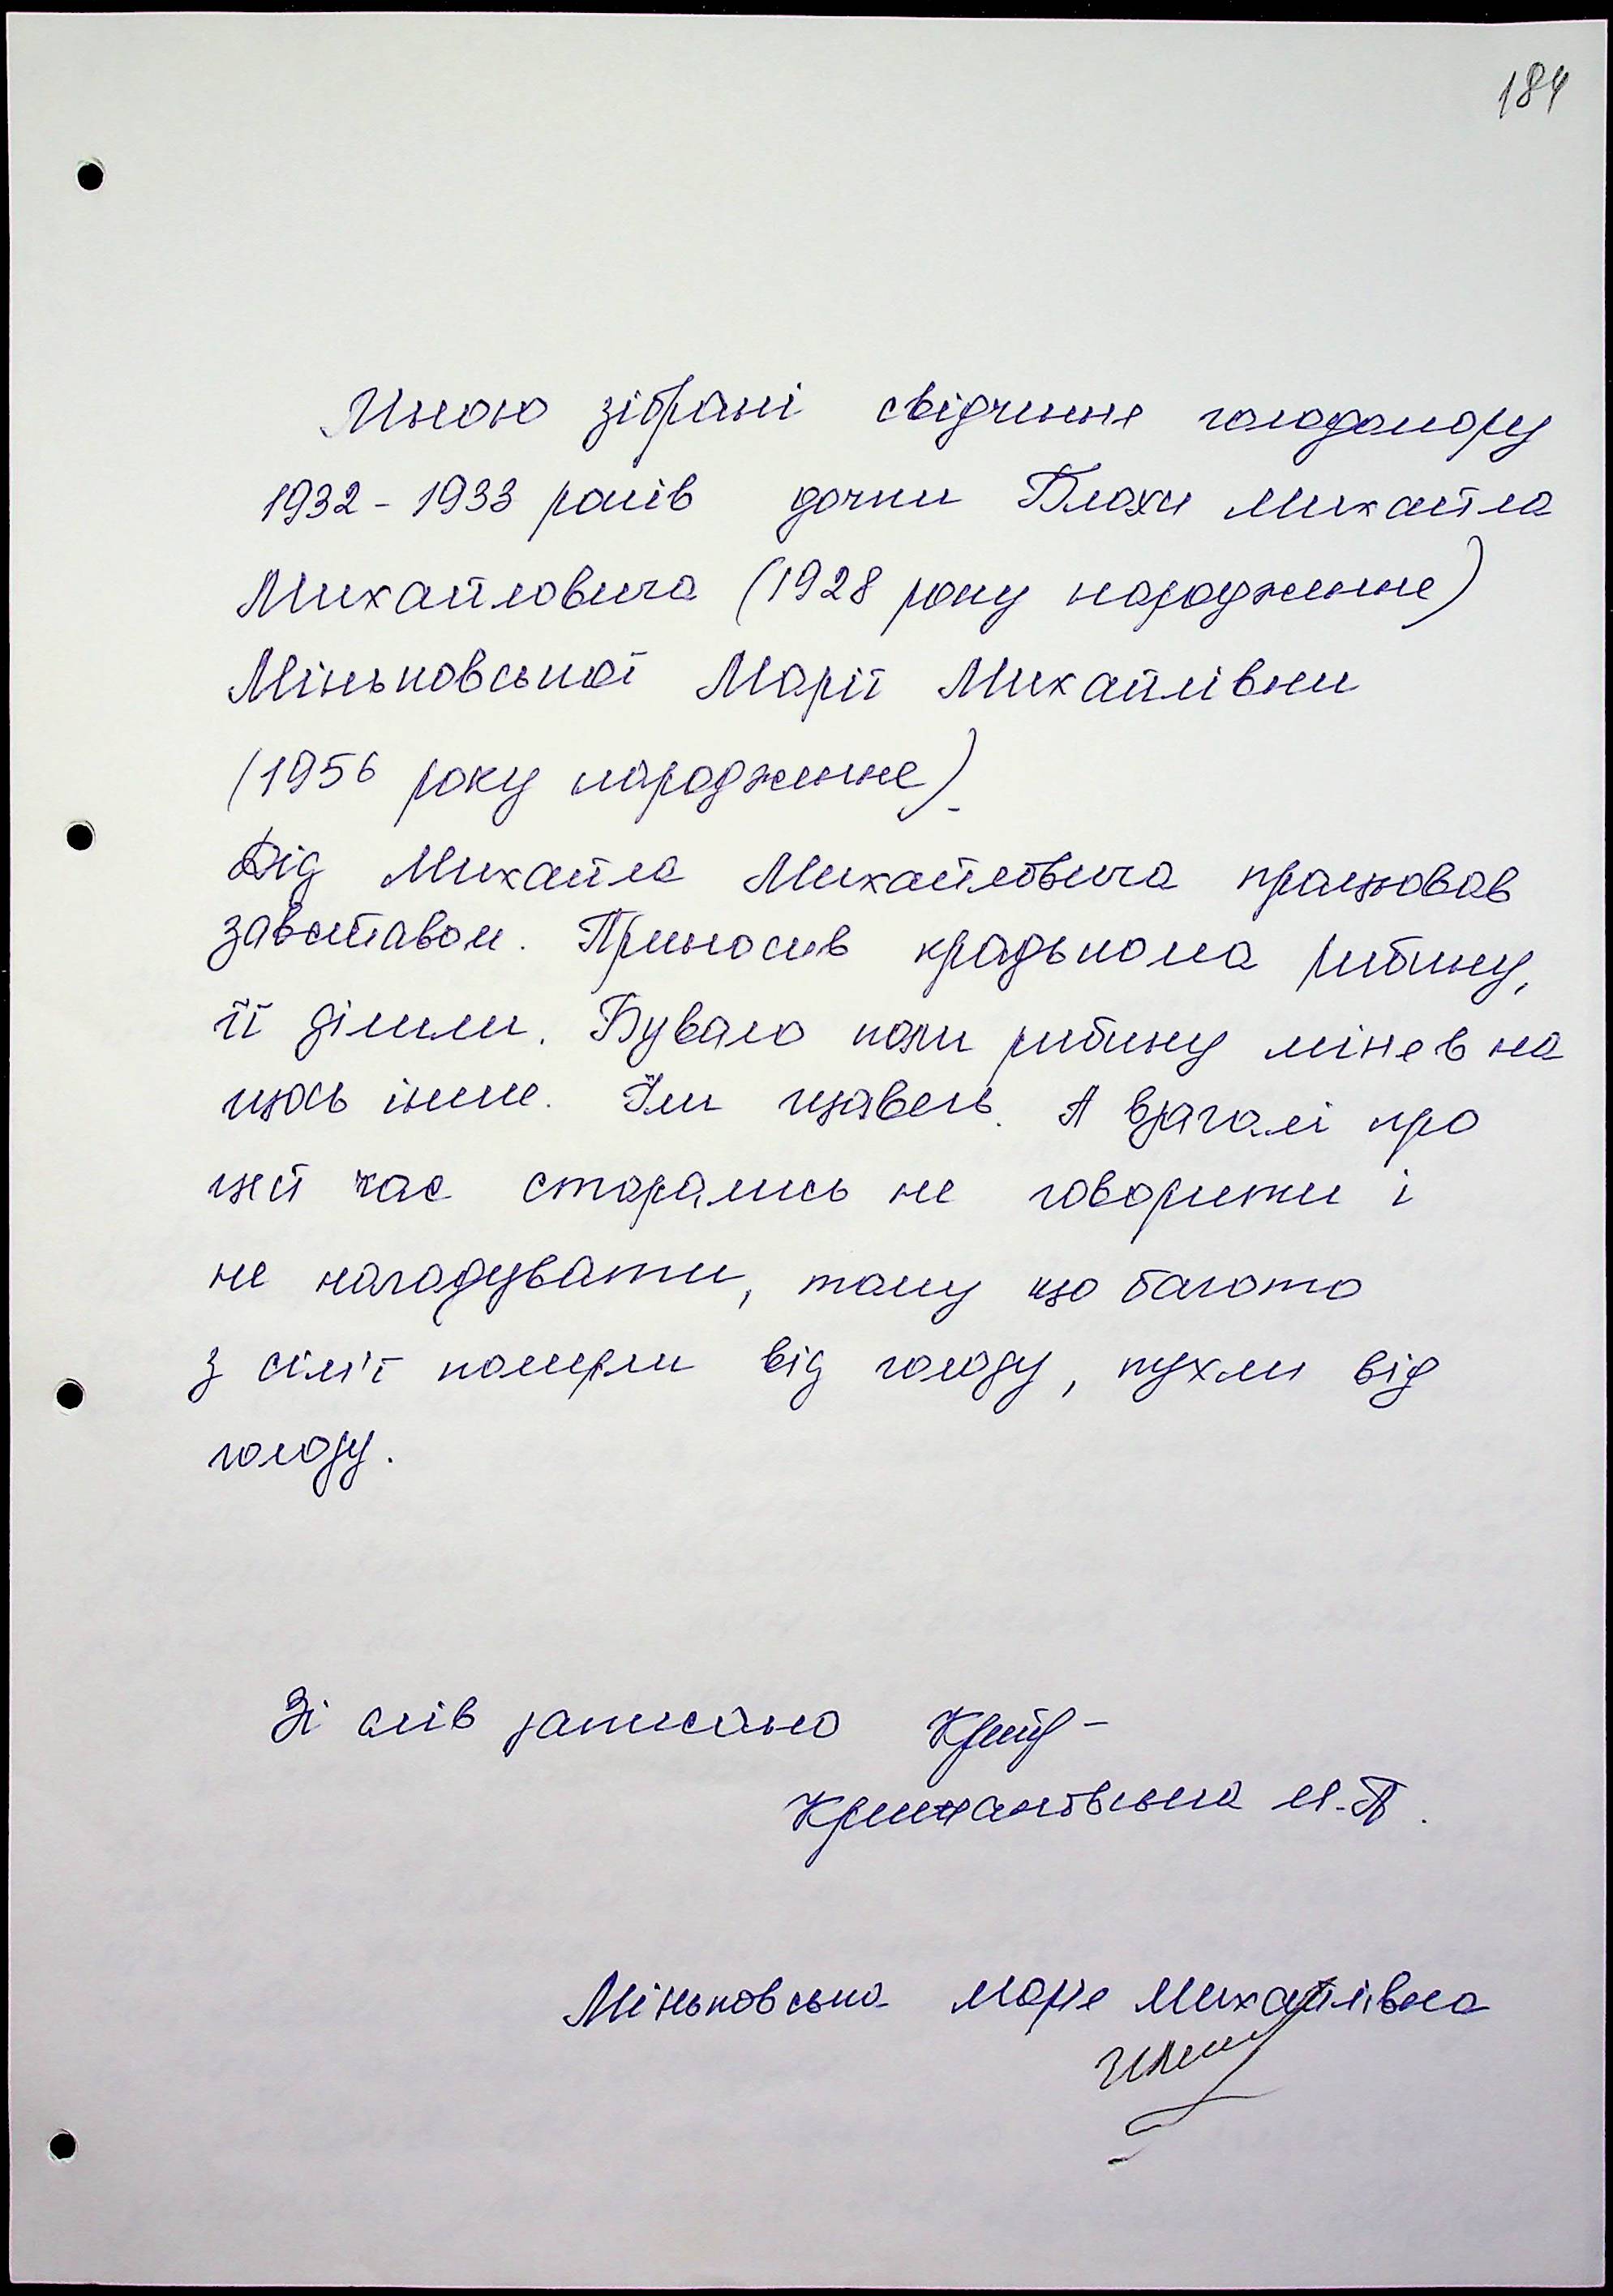 184
Мною зібрані свідчення голодомору
1932 - 1933 років дочки Блохи Михайла
Михайловича (1928 року народження)
Міньковської Марії Михайлівни
(1956 року народження).
Дід Михайла Михайловича працював
завставом. Приносив крадькома рибину,
її ділили. Бувало коли рибину міняв на
щось інше. Їли щавель. А взагалі про
цей час старались не говорити і
не нагадувати, тому що багато
з сім'ї померли від голоду, пухли від
голоду.
Зі слів записано
Крижановська М.П.
Міньковська Марія Михайлівна